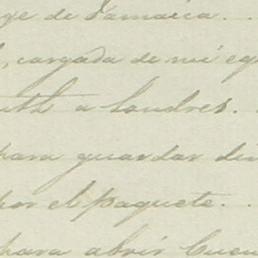 ge de Jamaica...
, cargada de mi eq
uth a Londres...
para guardar din
por el paquete...
para abrir Cuen